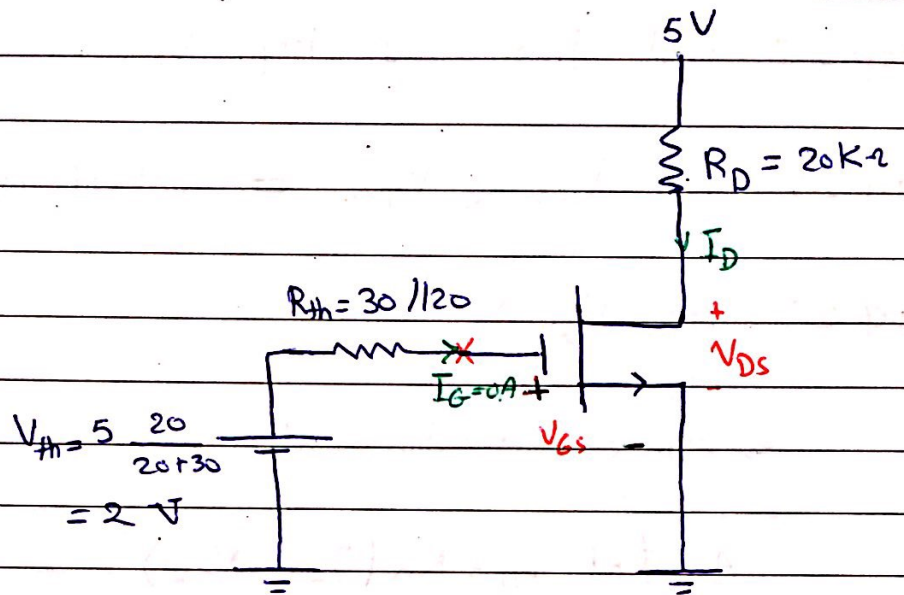 5V
R_D = 20KΩ
I_D
R_th = 30 // 20
+
V_DS
-
I_G = 0A +
V_GS -
V_th = 5 20/(20+30)
= 2 V